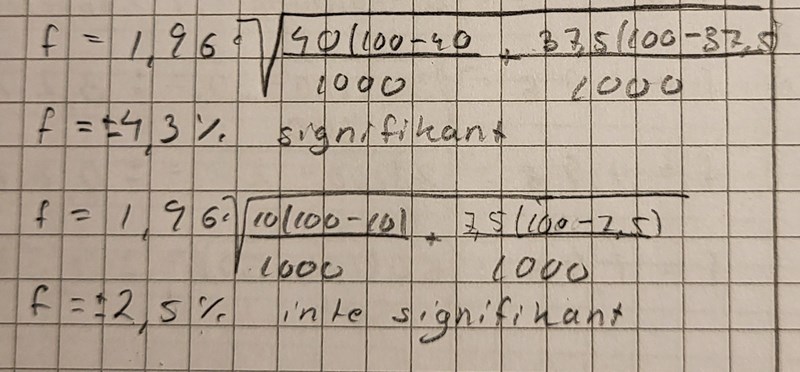 f = 1,96·√(40(100-40 / 1000 + 37,5(100-37,5) / 1000)
f = ±4,3 % signifikant
f = 1,96·√(10(100-10) / 1000 + 7,5(100-7,5) / 1000)
f = ±2,5 % inte signifikant